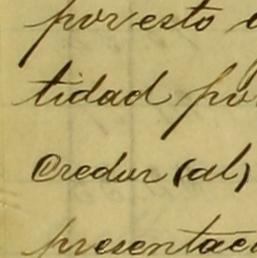 por esto
tidad po
Credor (al)
presentac